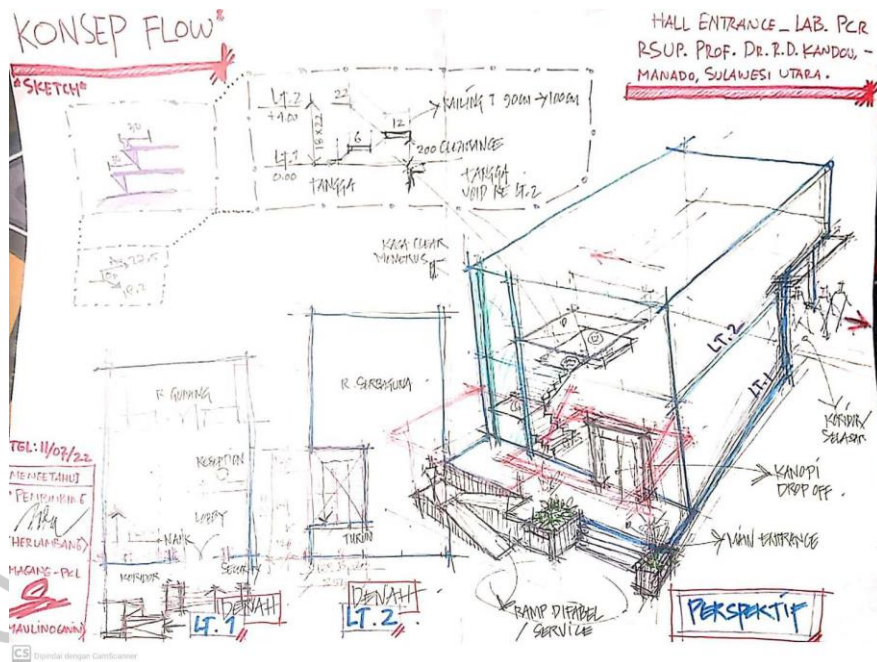 KONSEP FLOW²
"SKETCH"
HALL ENTRANCE_LAB. PCR
RSUP. PROF. DR. R.D. KANDOU, -
MANADO, SULAWESI UTARA.
LT.2
+4.00
18 X 22
LT.1
0.00
TANGGA
22
6
12
RAILING T 90cm → 100cm
200 CLEARANCE
TANGGA
VOID KE LT.2
KACA CLEAR
MENERUS
R. GUDANG
RESEPTION
LOBBY
NAIK
KORIDOR
SECURITY
DENAH
LT. 1
R. SERBAGUNA
TURUN
DENAH
LT. 2
LT. 2
LT. 1
KORIDOR/
SELASAR
KANOPI
DROP OFF.
MAIN ENTRANCE
RAMP DIFABEL
/ SERVICE
PERSPEKTIF
TGL: 11/07/22
MENGETAHUI
PEMBIMBING
(HERLAMBANG)
MAGANG - PKL
CS Dipindai dengan CamScanner